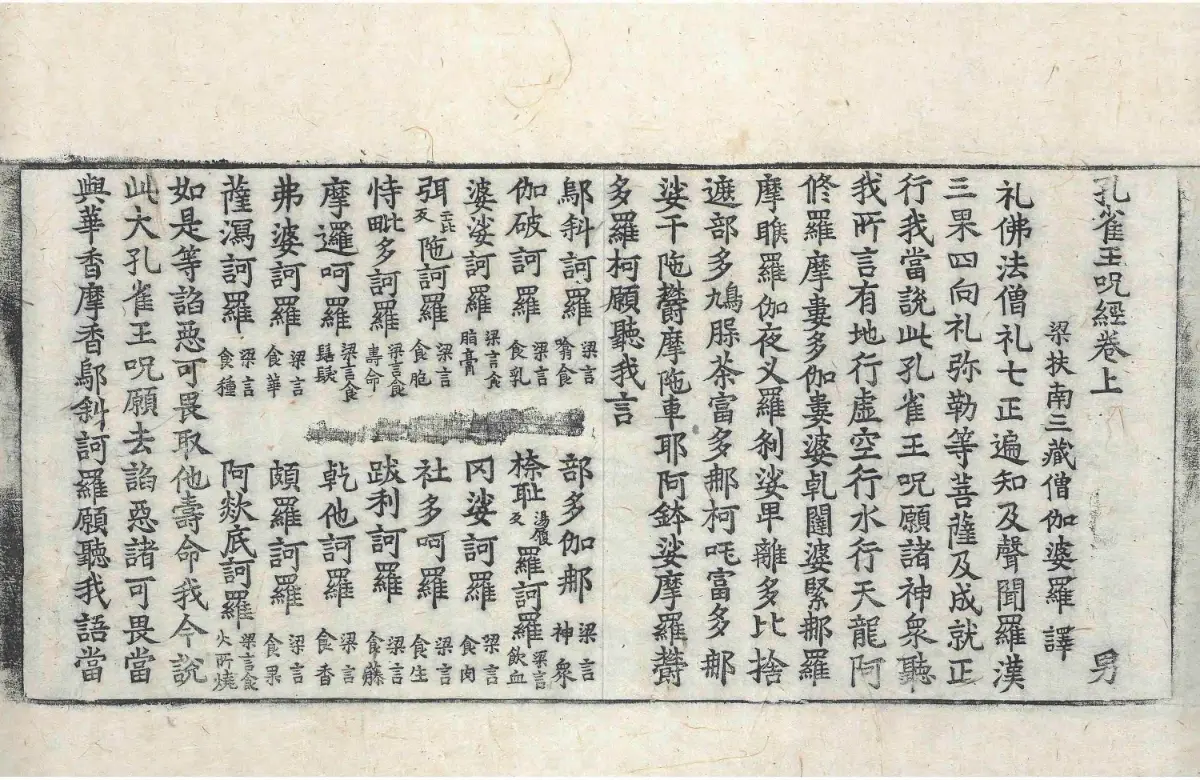 孔雀王呪經卷上 男
梁扶南三藏僧伽婆羅 譯
礼佛法僧礼七正遍知及聲聞羅漢
三果四向礼弥勒等菩薩及成就正
行我當說此孔雀王呪願諸神衆聽
我所言有地行虛空行水行天龍阿
修羅摩婁多伽婁婆乹闥婆緊那羅
摩睺羅伽夜叉羅刹娑畢離多比捨
遮部多鳩脲荼富多那柯吒富多那
娑干陁欝摩陁車耶阿鉢娑摩羅欝
多羅柯願聽我言
鄔斜訶羅 梁言喻食 部多伽那 梁言神衆
伽破訶羅 梁言食乳 㮈耻 湯履反 羅訶羅 梁言飲血
婆娑訶羅 梁言食脂膏 冈娑訶羅 梁言食肉
弭 亡比反 陁訶羅 梁言食胞 社多呵羅 梁言食生
恃毗多訶羅 梁言食壽命 跋利訶羅 梁言食藤
摩邏呵羅 梁言食鬘 乹他訶羅 梁言食香
弗婆訶羅 梁言食華 頗羅訶羅 梁言食果
薩瀉訶羅 梁言食種 阿歘底訶羅 梁言食火所燒
如是等諂惡可畏取他壽命我今說
此大孔雀王呪願去諂惡諸可畏當
與華香摩香鄔斜訶羅願聽我語當